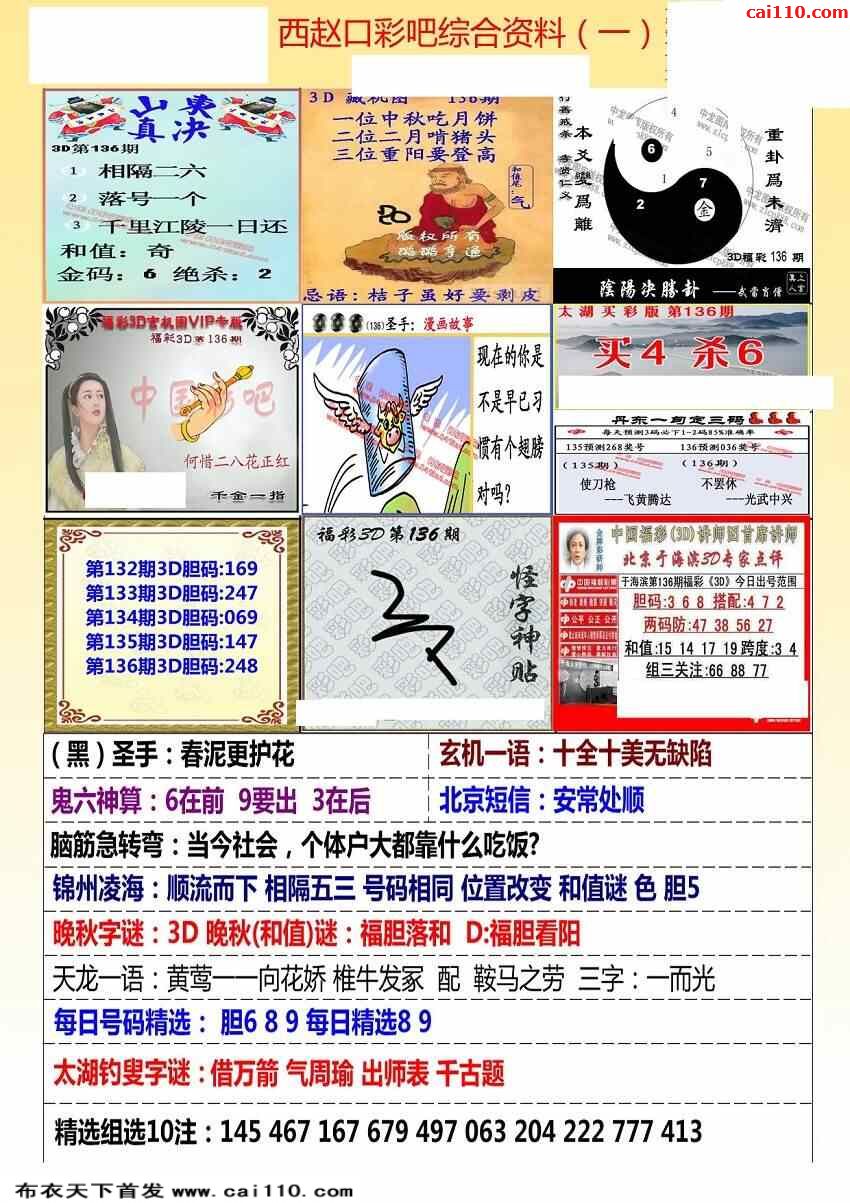 cai110.com
西赵口彩吧综合资料（一）
山夷
真决
3D第136期
1 相隔二六
2 落号一个
3 千里江陵一日还
和值：奇
金码：6 绝杀：2
3D 藏机图 136期
一位中秋吃月饼
二位二月啃猪头
三位重阳要登高
和值尾：气
版权所有
忌语：桔子虽好要剥皮
本爻变爲離
重卦爲未濟
4
6
5
1
7
2
金
3D福彩 136 期
陰陽決勝卦
福彩3D玄机图VIP专版
福彩3D第136期
中国彩吧
何惜二八花正红
千金一指
(136)圣手：漫画故事
现在的你是
不是早已习
惯有个翅膀
对吗？
太湖 买彩版 第136期
买4 杀6
丹东一句定三码
每天预测3码必下1-2码85%准确率
135预测268奖号 136预测036奖号
（135期） （136期）
使刀枪 不罢休
---飞黄腾达 ---光武中兴
第132期3D胆码:169
第133期3D胆码:247
第134期3D胆码:069
第135期3D胆码:147
第136期3D胆码:248
福彩3D第136期
怪字神贴
中国福彩(3D)讲师团首席讲师
北京于海滨3D专家点评
中国福利彩票
公平 公正 公开
于海滨第136期福彩《3D》今日出号范围
胆码:3 6 8 搭配:4 7 2
两码防:47 38 56 27
和值:15 14 17 19 跨度:3 4
组三关注:66 88 77
（黑）圣手：春泥更护花
玄机一语：十全十美无缺陷
鬼六神算：6在前 9要出 3在后
北京短信：安常处顺
脑筋急转弯：当今社会，个体户大都靠什么吃饭?
锦州凌海：顺流而下 相隔五三 号码相同 位置改变 和值谜 色 胆5
晚秋字谜：3D 晚秋(和值)谜：福胆落和 D:福胆看阳
天龙一语：黄莺一一向花娇 椎牛发冢 配 鞍马之劳 三字：一而光
每日号码精选： 胆6 8 9 每日精选8 9
太湖钓叟字谜：借万箭 气周瑜 出师表 千古题
精选组选10注：145 467 167 679 497 063 204 222 777 413
布衣天下首发 www.cai110.com